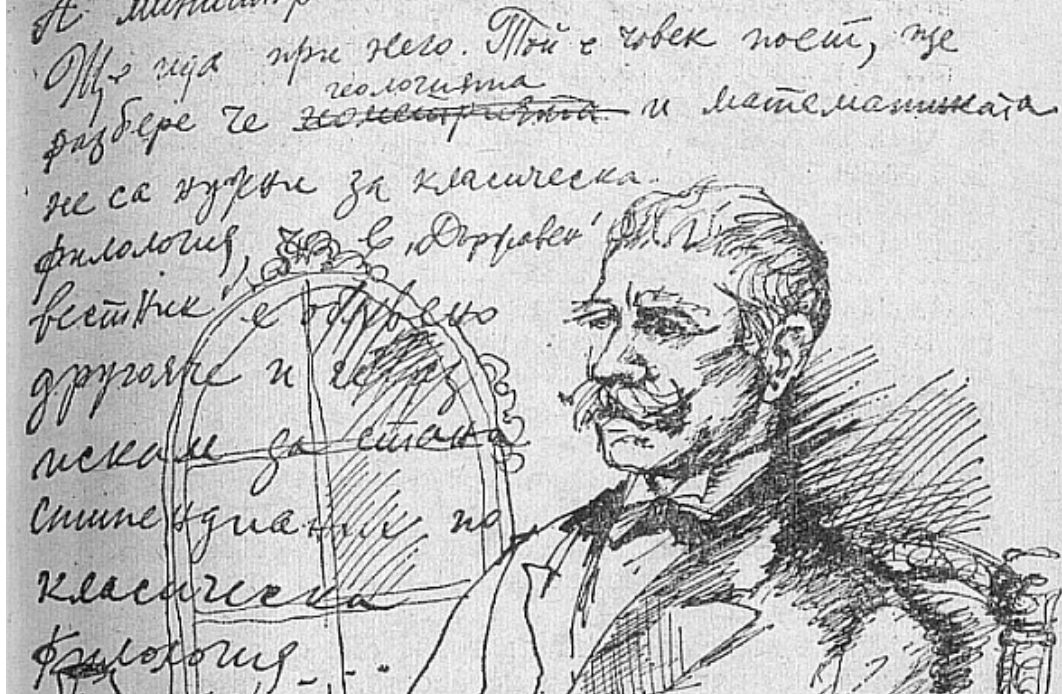 А министър
Ще ида при него. Той е човек поет, ще
геологията
разбере че геометрията и математиката
не са нужни за класическа
филология, че в „Държавен
вестник" е обявено
другояче и че аз
искам да стана
стипендиант по
класическа
филология